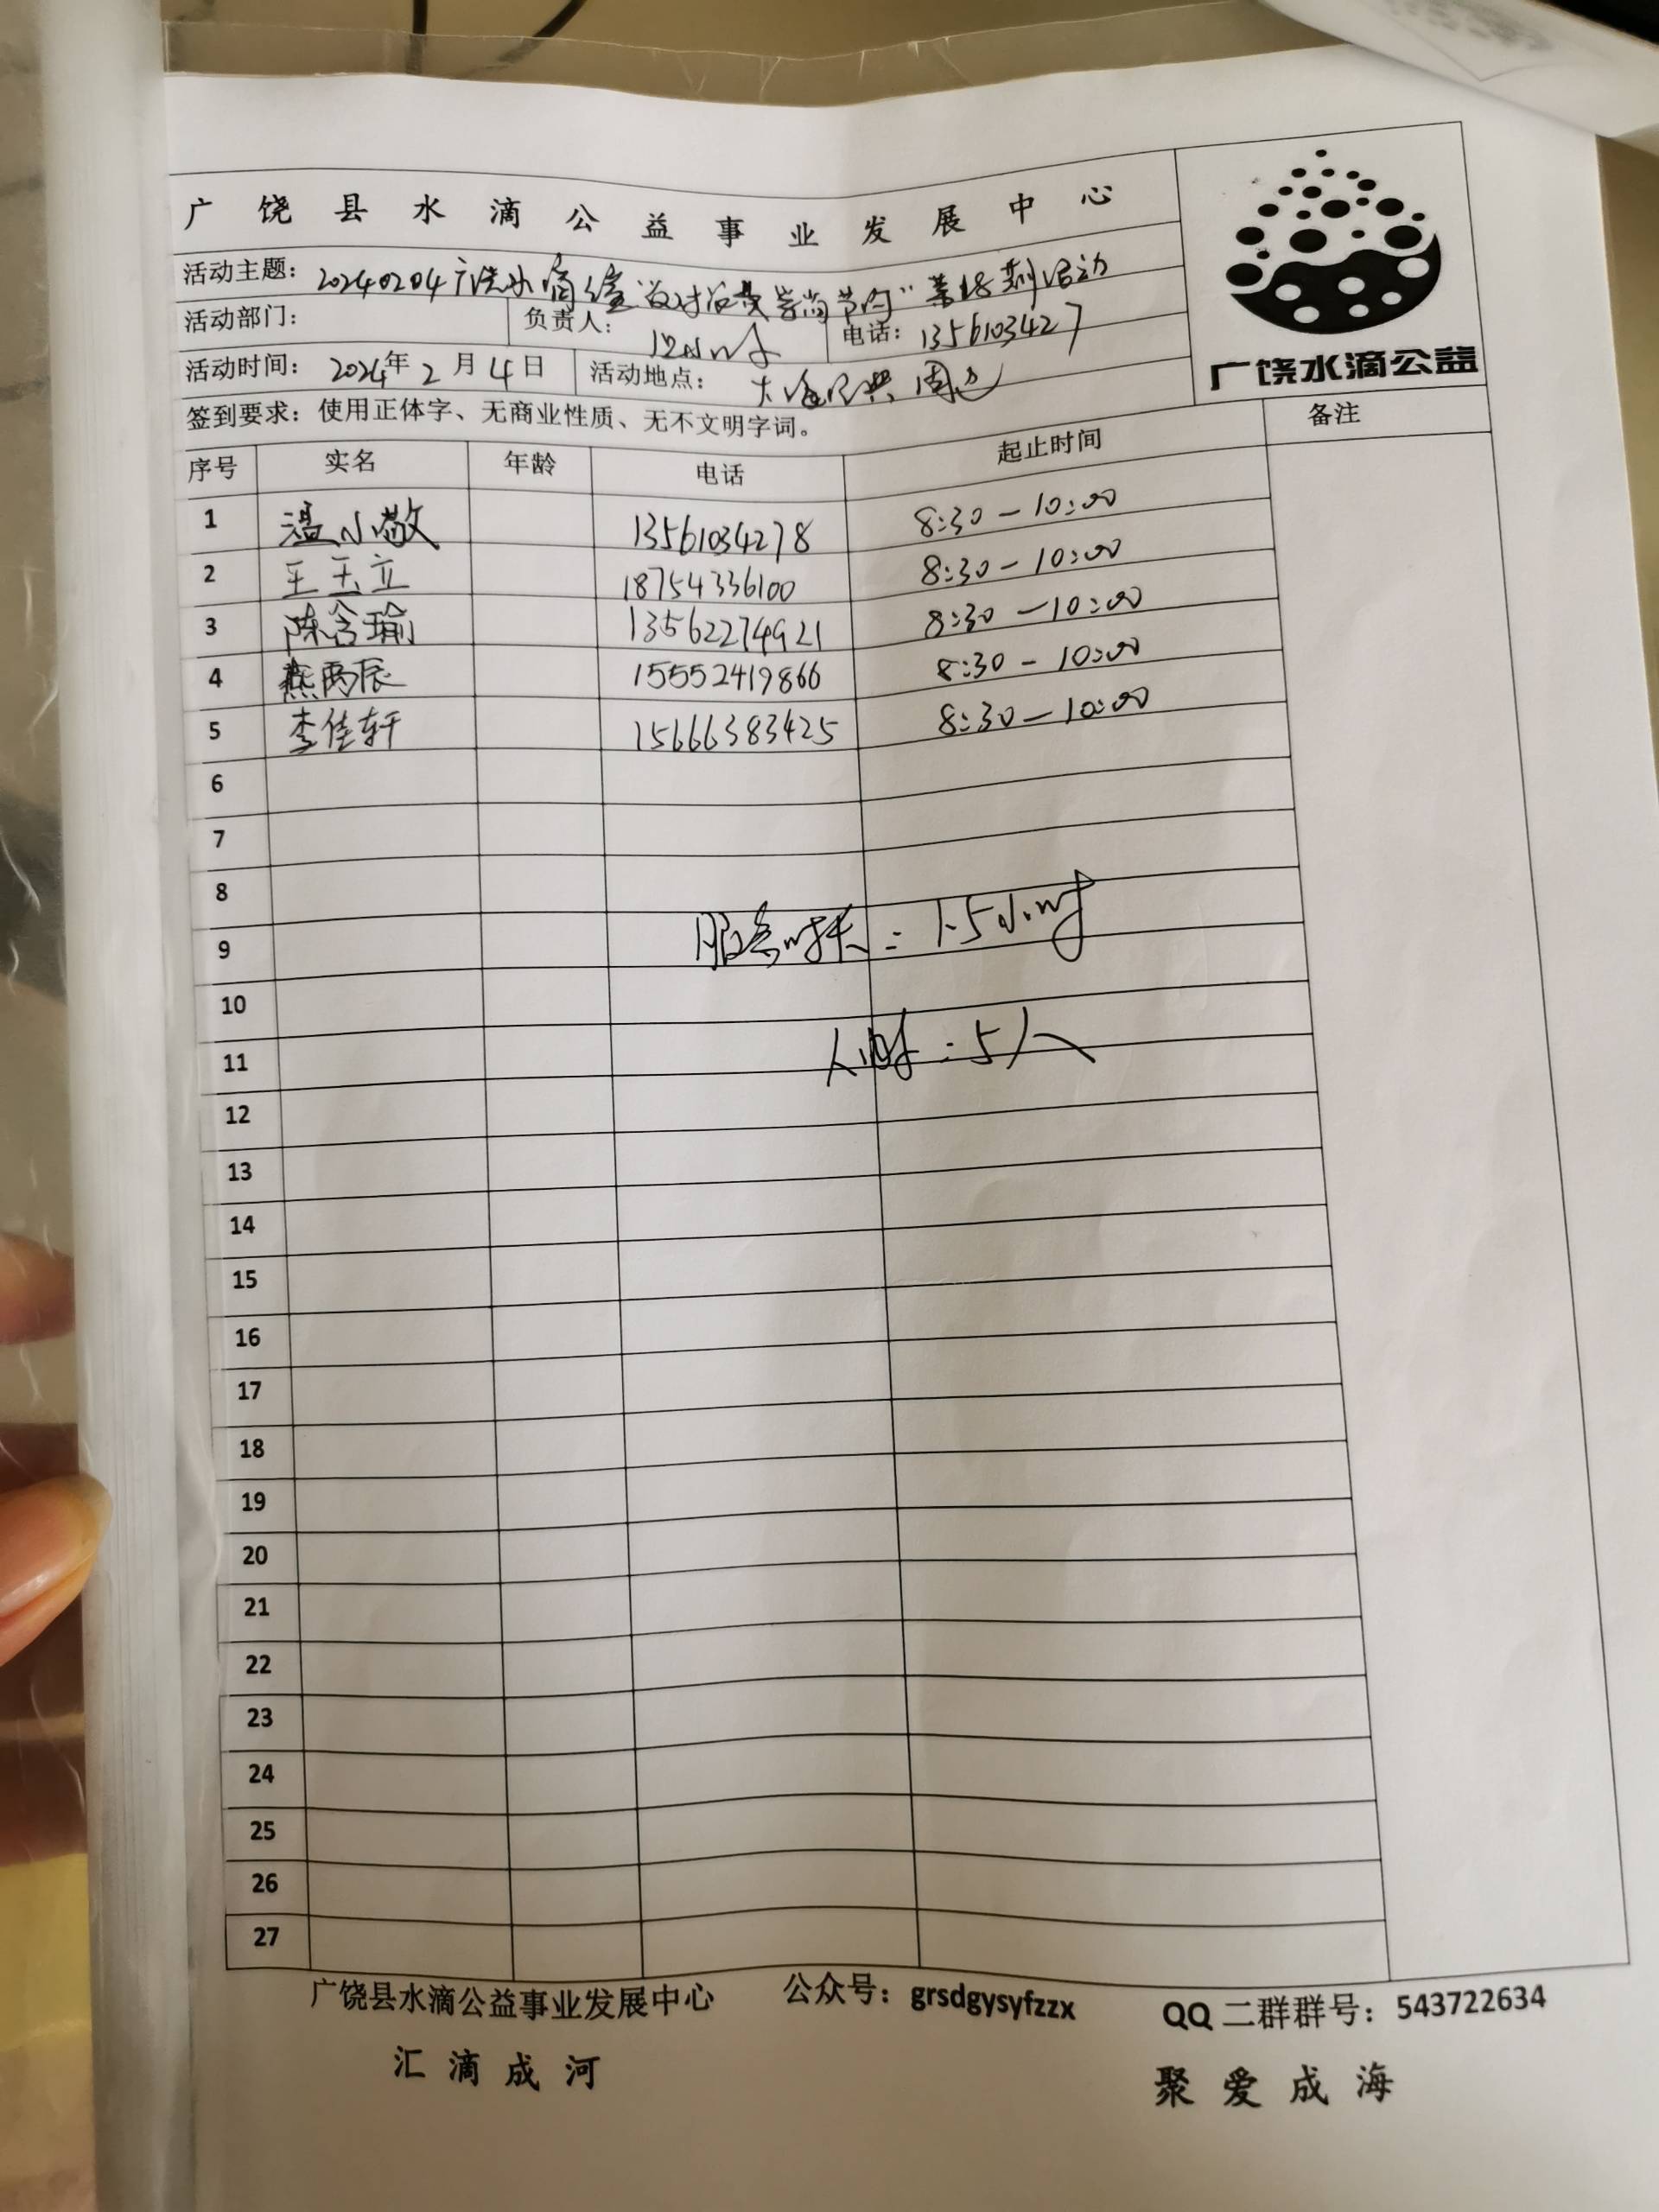 广饶县水滴公益事业发展中心
广饶水滴公益
活动主题：20240204广饶水滴公益"反对浪费 崇尚节约"第18期活动
活动部门： 负责人： 电话：1356103427
活动时间：2024年2月4日 活动地点：大海 周边
签到要求：使用正体字、无商业性质、无不文明字词。
序号 实名 年龄 电话 起止时间 备注
1 温小敬 13561034278 8:30-10:00
2 王玉立 18754336100 8:30-10:00
3 陈含瑜 13562274921 8:30-10:00
4 燕丙辰 15552419866 8:30-10:00
5 李佳轩 15666383425 8:30-10:00
6
7
8
9
服务时长：1.5小时
10
11
：5人
12
13
14
15
16
17
18
19
20
21
22
23
24
25
26
27
广饶县水滴公益事业发展中心 公众号：grsdgysyfzzx QQ二群群号：543722634
汇滴成河 聚爱成海